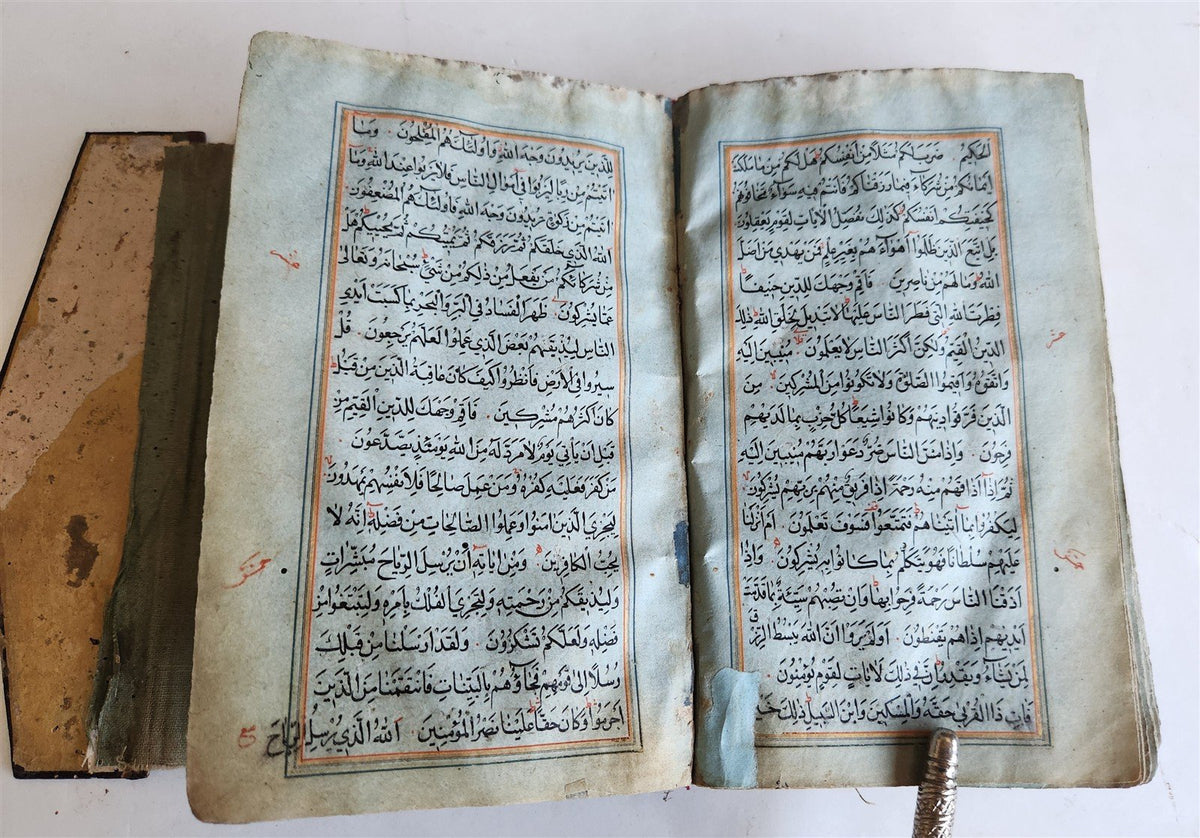 الحكيم ضرب لكم مثلا من انفسكم هل لكم من ما ملكت
ايمانكم من شركاء فيما رزقناكم فانتم فيه سواء تخافونهم
كخيفتكم انفسكم كذلك نفصل الآيات لقوم يعقلون
بل اتبع الذين ظلموا اهواءهم بغير علم فمن يهدي من اضل
الله وما لهم من ناصرين فاقم وجهك للدين حنيفا
فطرت الله التي فطر الناس عليها لا تبديل لخلق الله ذلك
الدين القيم ولكن اكثر الناس لا يعلمون منيبين اليه
واتقوه واقيموا الصلوة ولا تكونوا من المشركين من
الذين فرقوا دينهم وكانوا شيعا كل حزب بما لديهم
فرحون واذا مس الناس ضر دعوا ربهم منيبين اليه
ثم اذا اذاقهم منه رحمة اذا فريق منهم بربهم يشركون
ليكفروا بما اتيناهم فتمتعوا فسوف تعلمون ام انزلنا
عليهم سلطانا فهو يتكلم بما كانوا به يشركون واذا
اذقنا الناس رحمة فرحوا بها وان تصبهم سيئة بما قدمت
ايديهم اذا هم يقنطون اولم يروا ان الله يبسط الرزق
لمن يشاء ويقدر ان في ذلك لايات لقوم يؤمنون
فات ذا القربى حقه والمسكين وابن السبيل ذلك
للذين يريدون وجه الله فاولئك هم المفلحون وما
اتيتم من ربا ليربوا في اموال الناس فلا يربوا عند الله وما
اتيتم من زكوة تريدون وجه الله فاولئك هم المضعفون
الله الذي خلقكم ثم رزقكم ثم يميتكم ثم يحييكم هل
من شركائكم من يفعل من ذلكم من شيء سبحانه وتعالى
عما يشركون ظهر الفساد في البر والبحر بما كسبت ايدي
الناس ليذيقهم بعض الذي عملوا لعلهم يرجعون قل
سيروا في الارض فانظروا كيف كان عاقبة الذين من قبل
كان اكثرهم مشركين فاقم وجهك للدين القيم من
قبل ان ياتي يوم لا مرد له من الله يومئذ يصدعون
من كفر فعليه كفره ومن عمل صالحا فلانفسهم يمهدون
ليجزي الذين امنوا وعملوا الصالحات من فضله انه لا
يحب الكافرين ومن اياته ان يرسل الرياح مبشرات
وليذيقكم من رحمته ولتجري الفلك بامره ولتبتغوا من
فضله ولعلكم تشكرون ولقد ارسلنا من قبلك
رسلا الى قومهم فجاؤهم بالبينات فانتقمنا من الذين
اجرموا وكان حقا علينا نصر المؤمنين الله الذي يرسل الرياح